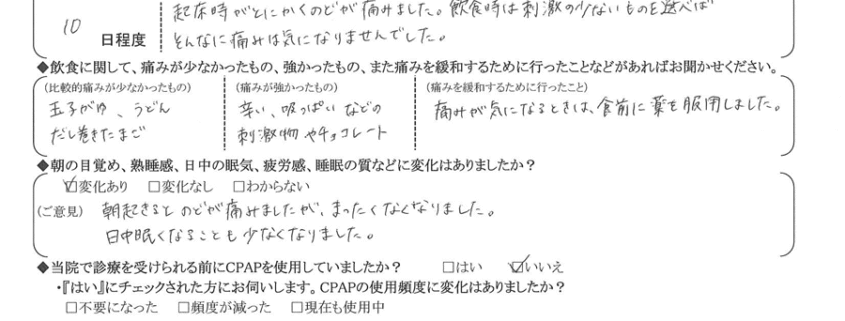 起床時がとにかくのどが痛みました。飲食時は刺激の少ないものを選べば
10 日程度 そんなに痛みは気になりませんでした。
◆飲食に関して、痛みが少なかったもの、強かったもの、また痛みを緩和するために行ったことなどがあればお聞かせください。
(比較的痛みが少なかったもの) (痛みが強かったもの) (痛みを緩和するために行ったこと)
玉子がゆ、うどん 辛い、吸っぱい などの 痛みが気になるときは、食前に薬を服用しました。
だし巻きたまご 刺激物やチョコレート
◆朝の目覚め、熟睡感、日中の眠気、疲労感、睡眠の質などに変化はありましたか？
☑変化あり □変化なし □わからない
(ご意見) 朝起きると のどが痛みましたが、まったくなくなりました。
日中眠くなることも少なくなりました。
◆当院で診療を受けられる前にCPAPを使用していましたか？ □はい ☑いいえ
・『はい』にチェックされた方にお伺いします。CPAPの使用頻度に変化はありましたか？
□不要になった □頻度が減った □現在も使用中